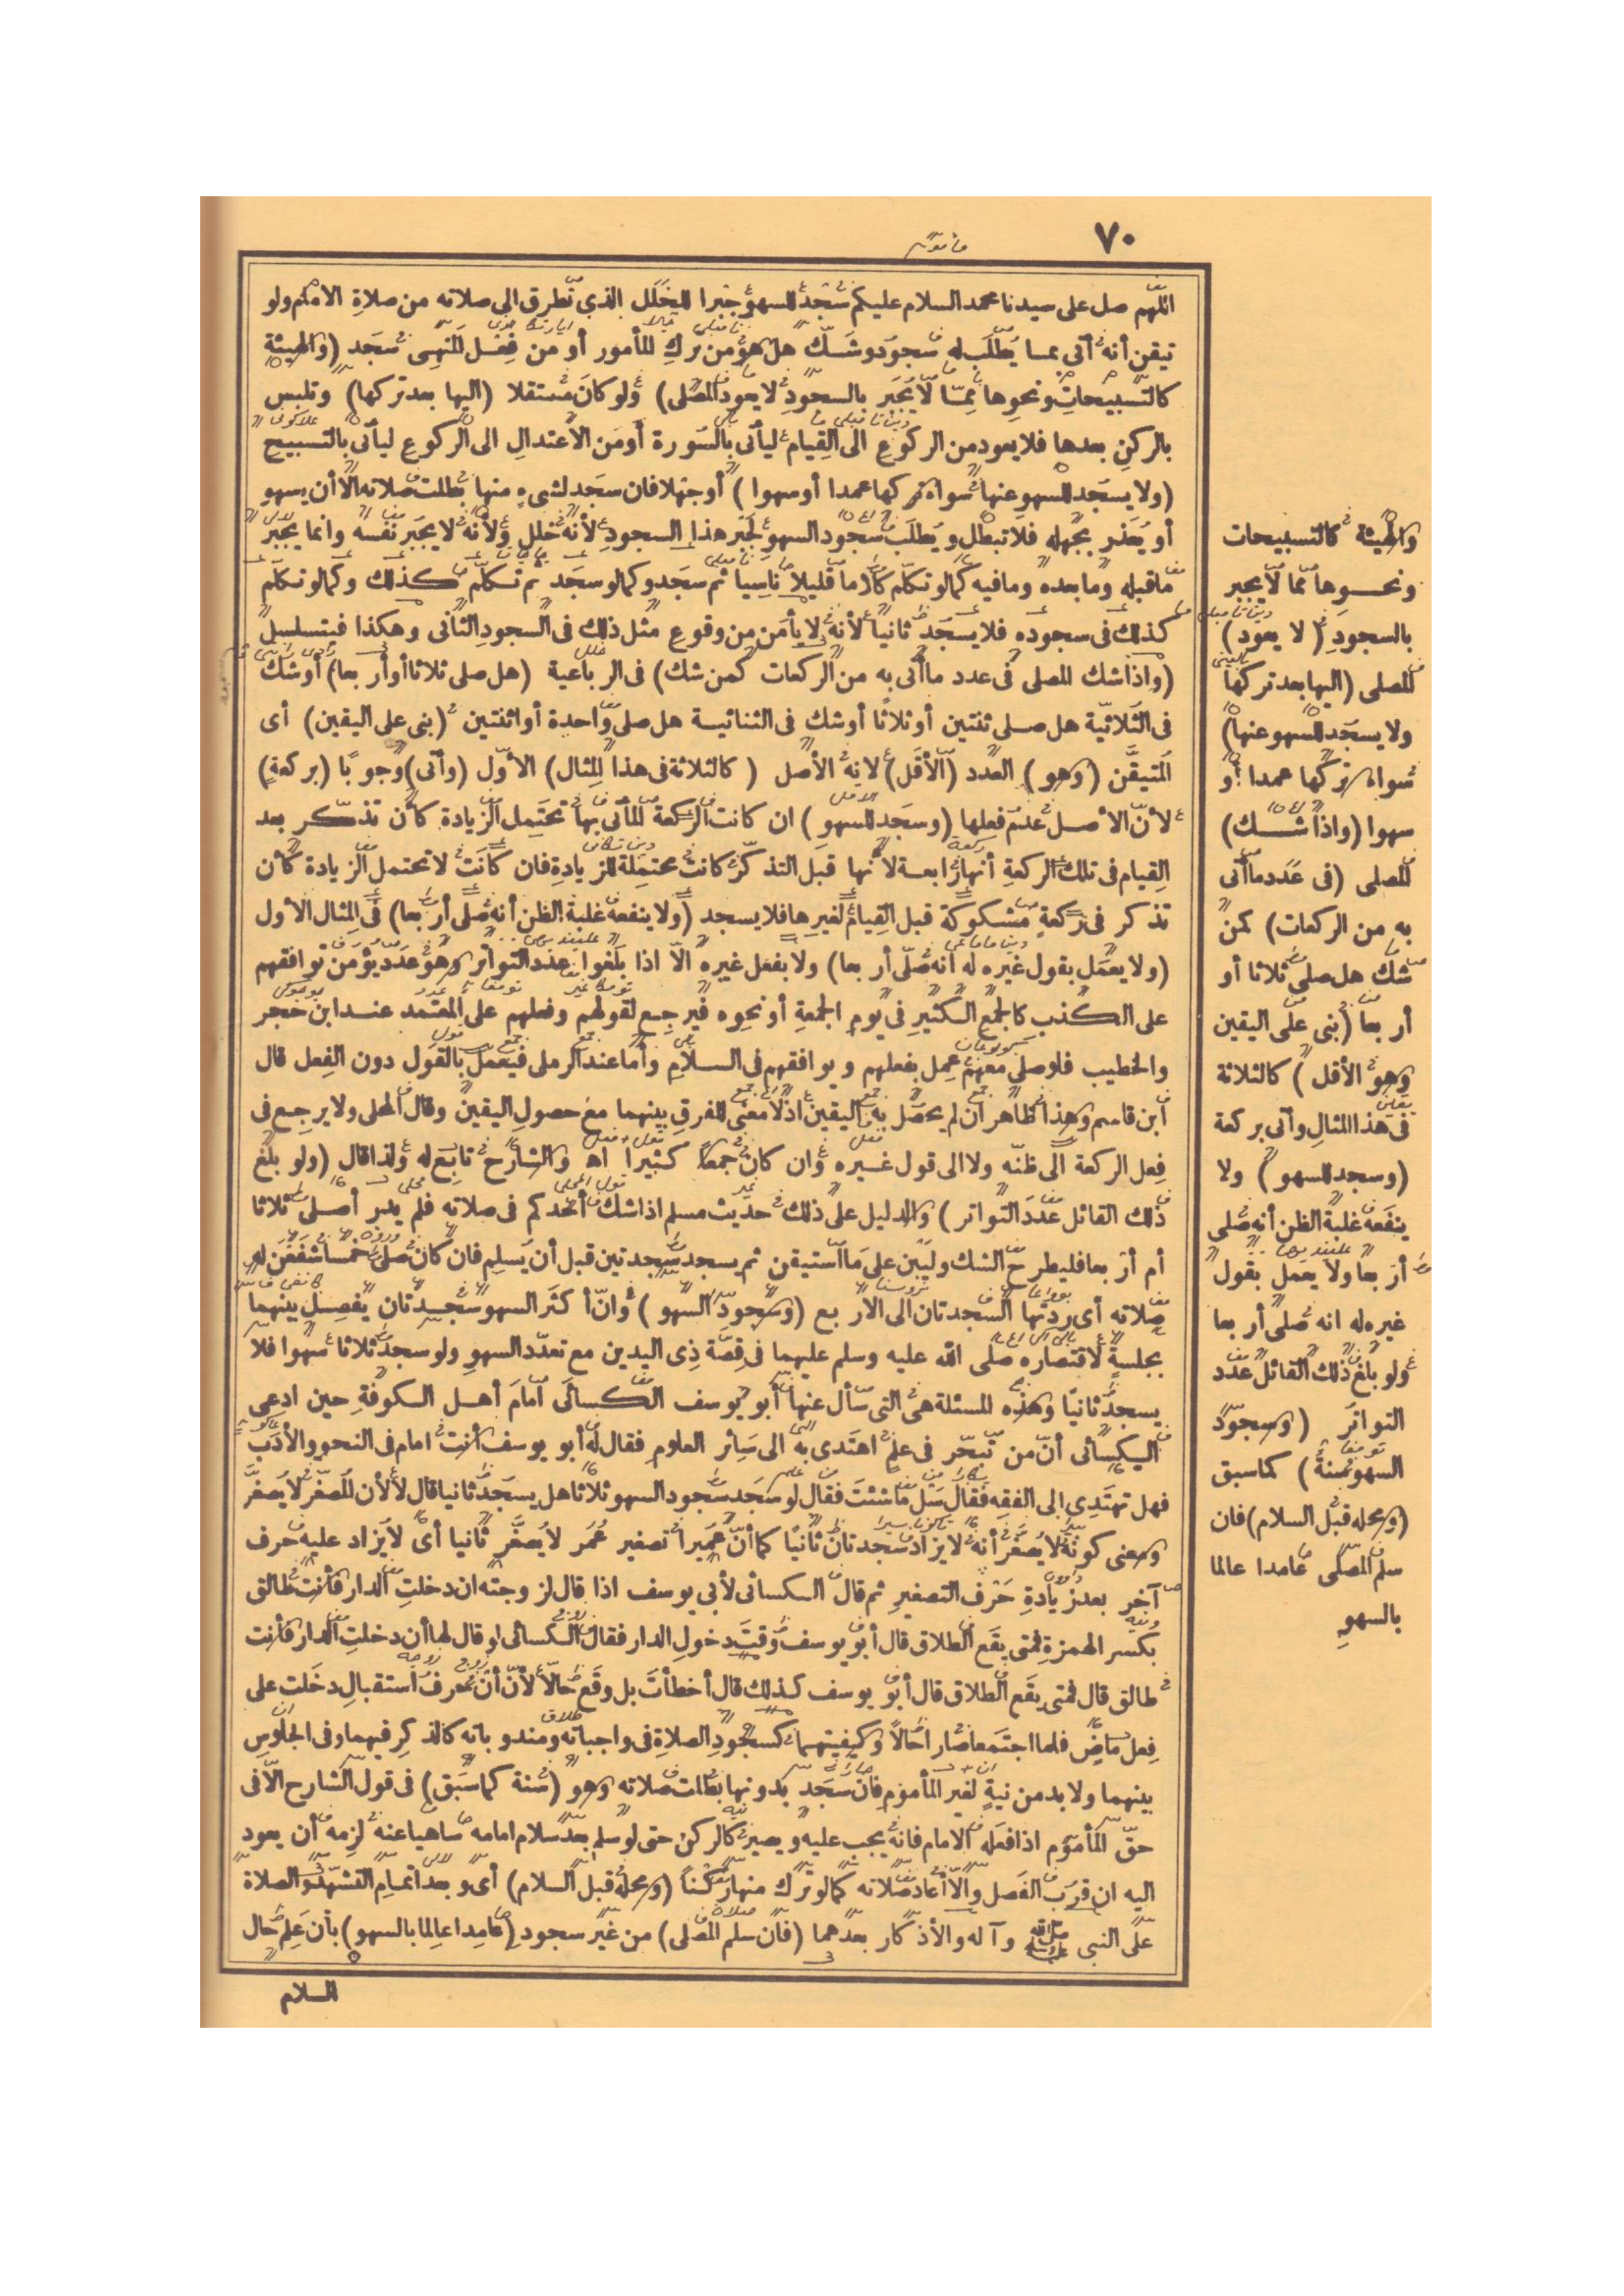 ٧٠
اللهم صل على سيدنا محمد السلام عليكم سجد للسهو جبرا للخلل الذي تطرق الى صلاته من صلاة الامام ولو
تيقن أنه أتى بما يطلب له سجود وشك هل هو من ترك المأمور أو من فعل المنهى سجد (والهيئة
كالتسبيحات ونحوها مما لا يجبر بالسجود لا يعود المصلى) ولو كان مستقلا (اليها بعد تركها) وتلبس
بالركن بعدها فلا يعود من الركوع الى القيام ليأتى بالسورة أو من الاعتدال الى الركوع ليأتى بالتسبيح
(ولا يسجد للسهو عنها سواء تركها عمدا أو سهوا) أو جهلا فان سجد لشىء منها بطلت صلاته الا أن يسهو
أو يعذر بجهله فلا تبطل ويطلب سجود السهو لجبر هذا السجود لأنه خلل ولأنه لا يجبر نفسه وانما يجبر
ما قبله وما بعده وما فيه كما لو تكلم كلاما قليلا ناسيا ثم سجد وكما لو سجد ثم تكلم كذلك وكما لو تكلم
كذلك فى سجوده فلا يسجد ثانيا لأنه لا يأمن من وقوع مثل ذلك فى السجود الثانى وهكذا فيتسلسل
(واذا شك المصلى فى عدد ما أتى به من الركعات كمن شك) فى الرباعية (هل صلى ثلاثا أو أربعا) أو شك
فى الثلاثية هل صلى ثنتين أو ثلاثا أو شك فى الثنائية هل صلى واحدة أو اثنتين (بنى على اليقين) أى
المتيقن (وهو) العدد (الأقل) لانه الأصل (كالثلاثة فى هذا المثال) الاول (وأتى) وجوبا (بركعة)
لأن الأصل عدم فعلها (وسجد للسهو) ان كانت الركعة المأتى بها تحتمل الزيادة كأن تذكر بعد
القيام فى تلك الركعة أنها رابعة لأنها قبل التذكر كانت محتملة للزيادة فان كانت لا تحتمل الزيادة كأن
تذكر فى ركعة مشكوكة قبل القيام لغيرها فلا يسجد (ولا ينفعه غلبة الظن أنه صلى أربعا) فى المثال الأول
(ولا يعمل بقول غيره له انه صلى أربعا) ولا بفعل غيره الا اذا بلغوا عدد التواتر وهو عدد يؤمن توافقهم
على الكذب كالجمع الكثير فى يوم الجمعة أو نحوه فيرجع لقولهم وفعلهم على المعتمد عند ابن حجر
والخطيب فلو صلى معهم عمل بفعلهم ويوافقهم فى السلام وأما عند الرملى فيعمل بالقول دون الفعل قال
ابن قاسم وهذا ظاهر ان لم يحصل به اليقين اذ لا معنى للفرق بينهما مع حصول اليقين وقال المحلى ولا يرجع فى
فعل الركعة الى ظنه ولا الى قول غيره وان كان جمعا كثيرا اه والشارح تابع له ولذا قال (ولو بلغ
ذلك القائل عدد التواتر) والدليل على ذلك حديث مسلم اذا شك أحدكم فى صلاته فلم يدر أصلى ثلاثا
أم أربعا فليطرح الشك وليبن على ما استيقن ثم يسجد سجدتين قبل أن يسلم فان كان صلى خمسا شفعن له
صلاته أى ردتها السجدتان الى الاربع (وسجود السهو) وان كثر السهو سجدتان يفصل بينهما
بجلسة لاقتصاره صلى الله عليه وسلم عليهما فى قصة ذى اليدين مع تعدد السهو ولو سجد ثلاثا سهوا فلا
يسجد ثانيا وهذه المسئلة هى التى سأل عنها أبو يوسف الكسائى امام أهل الكوفة حين ادعى
الكسائى أن من تبحر فى علم اهتدى به الى سائر العلوم فقال له أبو يوسف أنت امام فى النحو والأدب
فهل تهتدى الى الفقه فقال سل ما شئت فقال لو سجد سجود السهو ثلاثا هل يسجد ثانيا قال لا لأن المصغر لا يصغر
ومعنى كونه لا يصغر أنه لا يزاد سجدتان ثانيا كما أن عميرا تصغير عمر لا يصغر ثانيا أى لا يزاد عليه حرف
آخر بعد زيادة حرف التصغير ثم قال الكسائى لأبي يوسف اذا قال لزوجته ان دخلت الدار فأنت طالق
بكسر الهمزة فمتى يقع الطلاق قال أبو يوسف وقت دخول الدار فقال الكسائى لو قال لها أن دخلت الدار فأنت
طالق قال فمتى يقع الطلاق قال أبو يوسف كذلك قال أخطأت بل وقع حالا لأن أن حرف استقبال دخلت على
فعل ماض فلما اجتمعا صارا حالا وكيفيتهما كسجود الصلاة فى واجباته ومندوباته كالذكر فيهما وفى الجلوس
بينهما ولا بد من نية لغير المأموم فان سجد بدونها بطلت صلاته وهو (سنة كما سبق) فى قول الشارح الا فى
حق المأموم اذا فعله الامام فانه يجب عليه ويصير كالركن حتى لو سلم بعد سلام امامه ساهيا عنه لزمه أن يعود
اليه ان قرب الفصل والا أعاد صلاته كما لو ترك منها ركنا (ومحله قبل السلام) أى وبعد اتمام التشهد والصلاة
على النبى ﷺ وآله والأذكار بعدهما (فان سلم المصلى) من غير سجود (عامدا عالما بالسهو) بأن علم حال
السلام
والهيئة كالتسبيحات
ونحوها مما لا يجبر
بالسجود (لا يعود)
المصلى (اليها بعد تركها
ولا يسجد للسهو عنها)
سواء تركها عمدا أو
سهوا (واذا شك)
المصلى (فى عدد ما أتى
به من الركعات) كمن
شك هل صلى ثلاثا أو
أربعا (بنى على اليقين
وهو الأقل) كالثلاثة
فى هذا المثال وأتى بركعة
(وسجد للسهو) ولا
ينفعه غلبة الظن أنه صلى
أربعا ولا يعمل بقول
غيره له انه صلى أربعا
ولو بلغ ذلك القائل عدد
التواتر (وسجود
السهو سنة) كما سبق
(ومحله قبل السلام) فان
سلم المصلى عامدا عالما
بالسهو